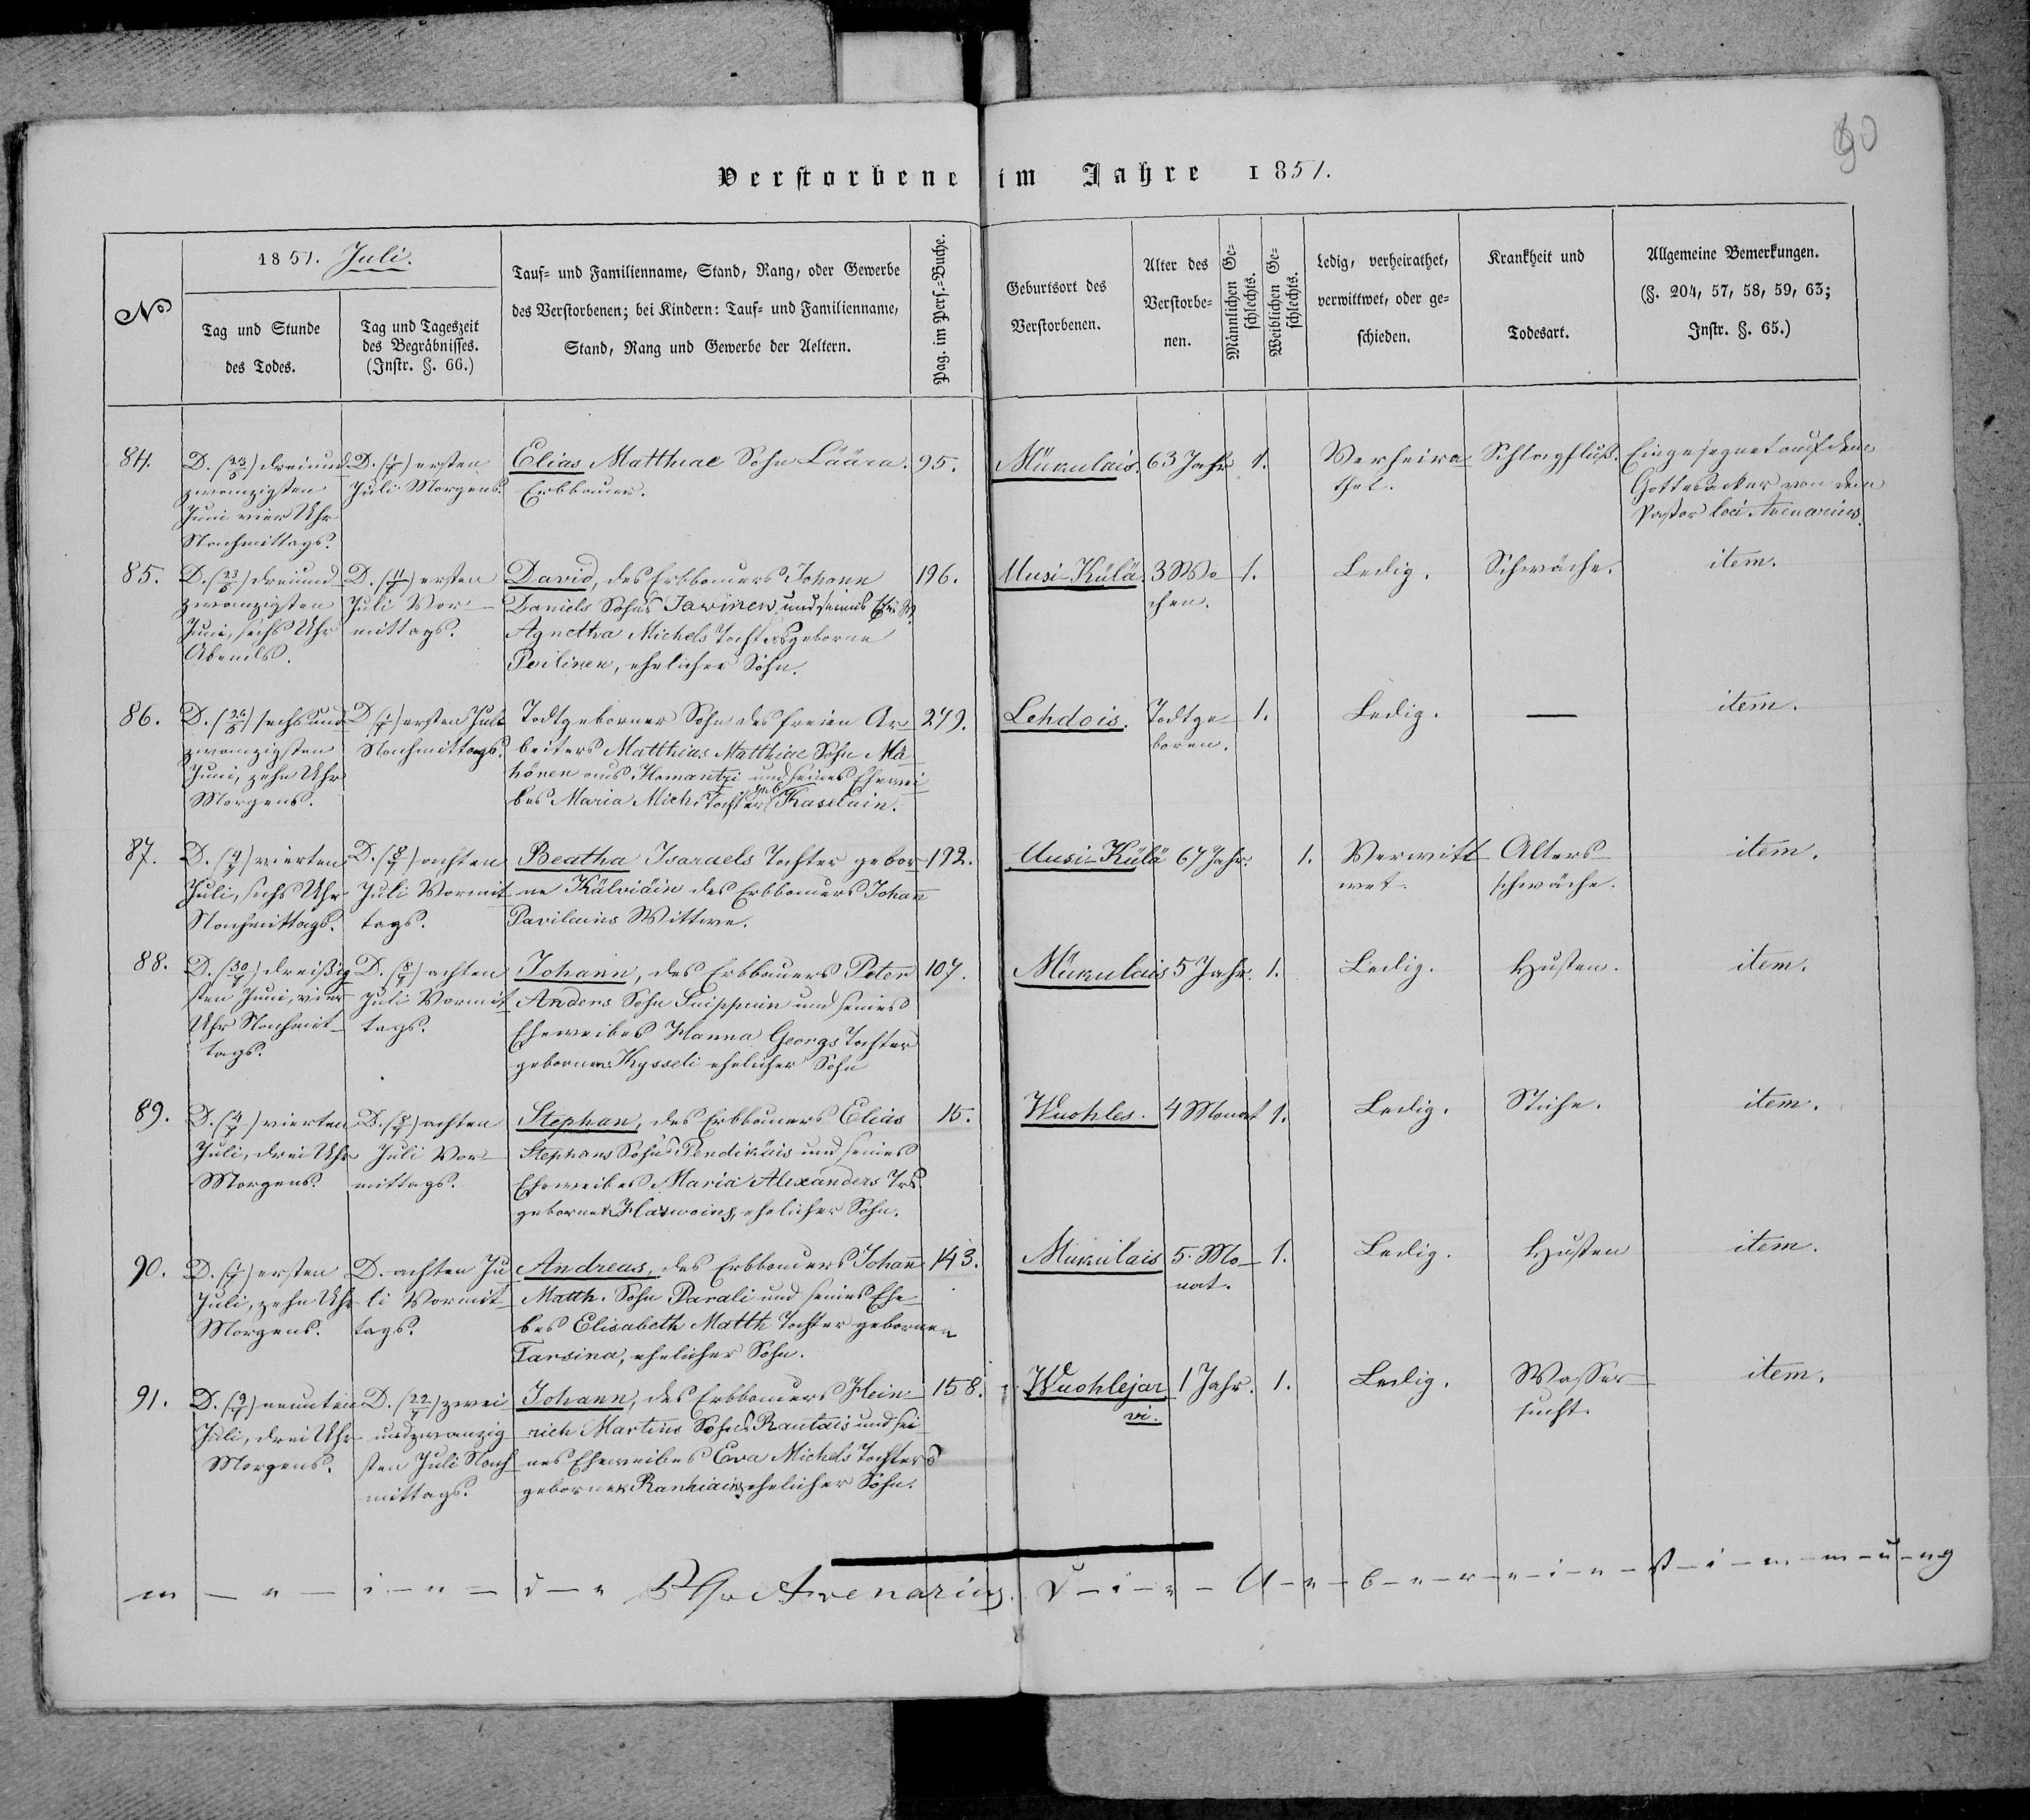 50
Verstorbene im Jahre 1851.
No
1851. Juli.
Tag und Stunde
des Todes.
Tag und Tageszeit
des Begräbnisses.
(Instr. §. 66.)
Tauf- und Familienname, Stand, Rang, oder Gewerbe
des Verstorbenen; bei Kindern: Tauf- und Familienname,
Stand, Rang und Gewerbe der Aeltern.
Pag. im Pers.-Buche.
Geburtsort des
Verstorbenen.
Alter des
Verstorbe-
nen.
Männlichen Ge-
schlechts.
Weiblichen Ge-
schlechts.
Ledig, verheirathet,
verwittwet, oder ge-
schieden.
Krankheit und
Todesart.
Allgemeine Bemerkungen.
(§. 204, 57, 58, 59, 63;
Instr. §. 65.)
84.
D. (23/6) dreiund-
zwanzigsten
Juni vier Uhr
Nachmittags.
D. (1/7) ersten
Juli Morgens.
Elias Matthiae Sohn Läära.
Erbbauer.
95.
Mükulais.
63 Jahr
1.
Verheira-
thet.
Schlagfluß.
Eingesegnet auf dem
Gottesacker von dem
Pastor loci Avenarius.
85.
D. (23/6) dreiund-
zwanzigsten
Juni, sechs Uhr
Abends.
D. (11/7) ersten
Juli Vor-
mittags.
David, des Erbbauers Johann
Daniels Sohns Savinen und seines
Agnetha Michels Tochter geborne
Peilinen, ehelicher Sohn.
196.
Uusi-Külä
3 Wo-
chen.
1.
Ledig.
Schwäche.
item.
86.
D. (26/6) sechsund-
zwanzigsten
Juni, zehn Uhr
Morgens.
D. (1/7) ersten Juli
Nachmittags.
Todtgeborner Sohn des freien Ar-
beiters Matthias Matthiae Sohn Mä-
hönen aus Homantzi und seines Ehewei-
bes Maria Mich. Tochter geb. Kaselain.
279.
Lehdois.
Todtge-
boren.
1.
Ledig.
—
item.
87.
D. (4/7) vierten
Juli, sechs Uhr
Nachmittags.
D. (8/7) achten
Juli Vormit-
tags.
Beatha Isaraels Tochter gebor-
ne Kälviäin des Erbbauers Johann
Pavilains Wittwe.
192.
Uusi-Külä
67 Jahr.
1.
Verwitt-
wet.
Alters-
schwäche.
item.
88.
D. (30/6) dreißig-
sten Juni, vier
Uhr Nachmit-
tags.
D. (8/7) achten
Juli Vormit-
tags.
Johann, des Erbbauers Peter
Anders Sohn Suippuin und seines
Eheweibes Hanna Georgs Tochter
gebornen Kysseli ehelicher Sohn
107.
Mükulais
5 Jahr.
1.
Ledig.
Husten.
item.
89.
D. (4/7) vierten
Juli, drei Uhr
Morgens.
D. (8/7) achten
Juli Vor-
mittags.
Stephan, des Erbbauers Elias
Stephans Sohns Pendikäis und seines
Eheweibes Maria Alexanders Tr.
gebornen Harwoins, ehelicher Sohn.
15.
Wuohles.
4 Monat
1.
Ledig.
Stiche.
item.
90.
D. (1/7) ersten
Juli, zehn Uhr
Morgens.
D. achten Ju-
li Vormit-
tags.
Andreas, des Erbbauers Johann
Matth. Sohn Parali und seines Ehe-
bes Elisabeth Matth Tochter gebornen
Tarsina, ehelicher Sohn.
143.
Mükulais
5. Mo-
nat.
1.
Ledig.
Husten
item.
91.
D. (9/7) neunten
Juli, drei Uhr
Morgens.
D. (22/7) zwei
undzwanzig-
sten Juli Nach-
mittags.
Johann, des Erbbauers Hein-
rich Martins Sohns Rautais und sei-
nes Eheweibes Eva Michels Tochters
gebornen Ranhiains ehelicher Sohn.
158.
Wuohlejar-
vi.
1 Jahr.
1.
Ledig.
Wasser-
sucht.
item.
Avenarius. d-i-e- U-e-b-e-r-e-i-n-st-i-m-m-u-ng